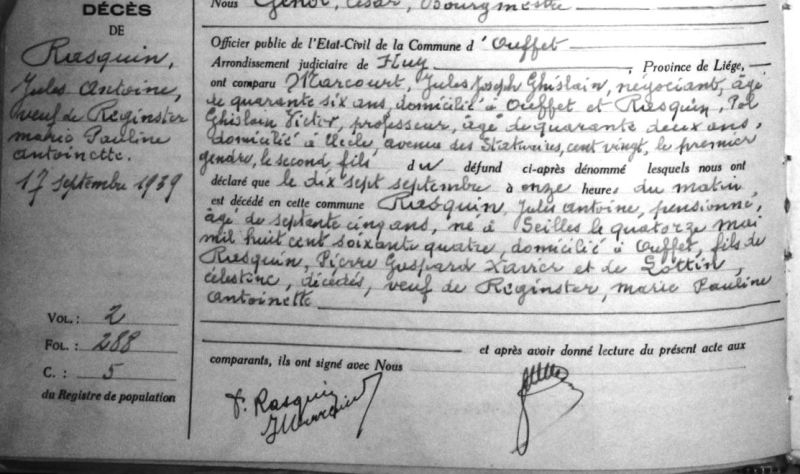 DÉCÈS
DE
Rasquin,
Jules Antoine,
veuf de Reginster
Marie Pauline
Antoinette.
17 septembre 1939
VOL. : 2
FOL. : 288
C. : 5
du Registre de population
Nous Genot, César, Bourgmestre
Officier public de l'Etat-Civil de la Commune d'Ouffet
Arrondissement judiciaire de Huy, Province de Liége,
ont comparu Marcourt, Jules Joseph Ghislain, négociant, âgé
de quarante six ans, domicilié à Ouffet et Rasquin, Pol
Ghislain Victor, professeur, âgé de quarante deux ans,
domicilié à Uccle, avenue des Statuaires, cent vingt, le premier
gendre, le second fils du défund ci-après dénommé lesquels nous ont
déclaré que le dix sept septembre à onze heures du matin,
est décédé en cette commune Rasquin, Jules Antoine, pensionné,
âgé de septante cinq ans, né à Seilles le quatorze mai
mil huit cent soixante quatre, domicilié à Ouffet, fils de
Rasquin, Pierre Gaspard Xavier et de Lottin,
Célestine, décédés, veuf de Reginster, Marie Pauline
Antoinette
et après avoir donné lecture du présent acte aux
comparants, ils ont signé avec Nous
P. Rasquin
JMarcourt